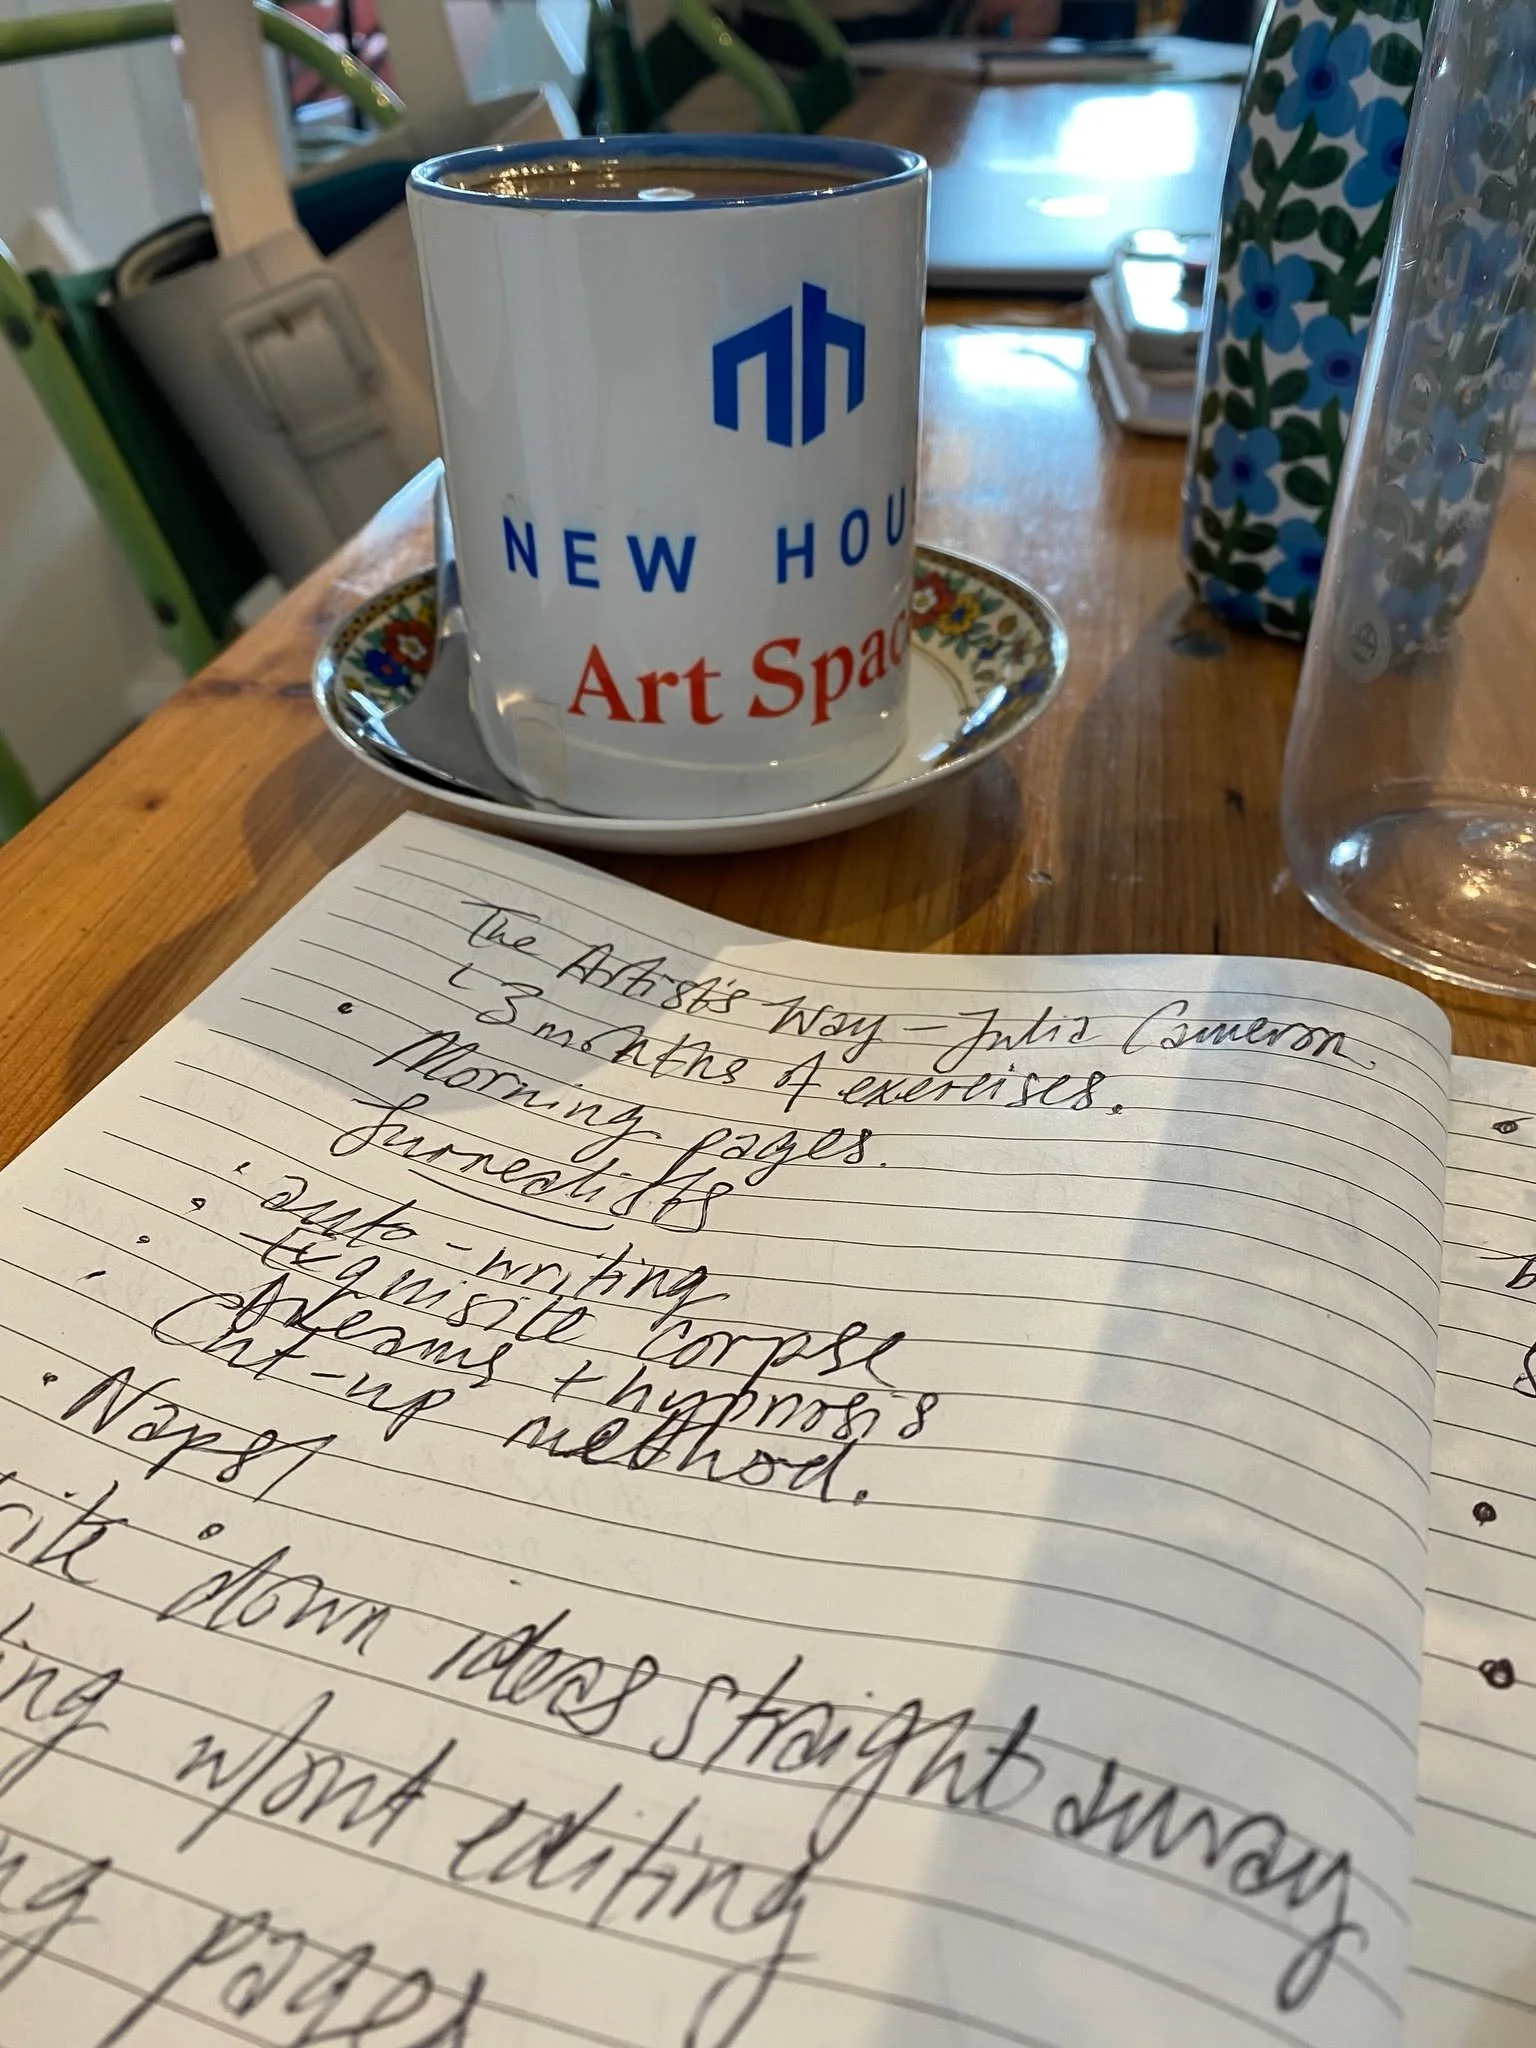 nh
NEW HOU
Art Spac
The Artist's Way - Julia Cameron.
3 months of exercises.
• Morning pages.
Surrealists
• auto-writing
• Exquisite corpse
• dreams + hypnosis
• Cut-up method.
• Naps!
rite down ideas straight away
ing w/out editing
ng pages